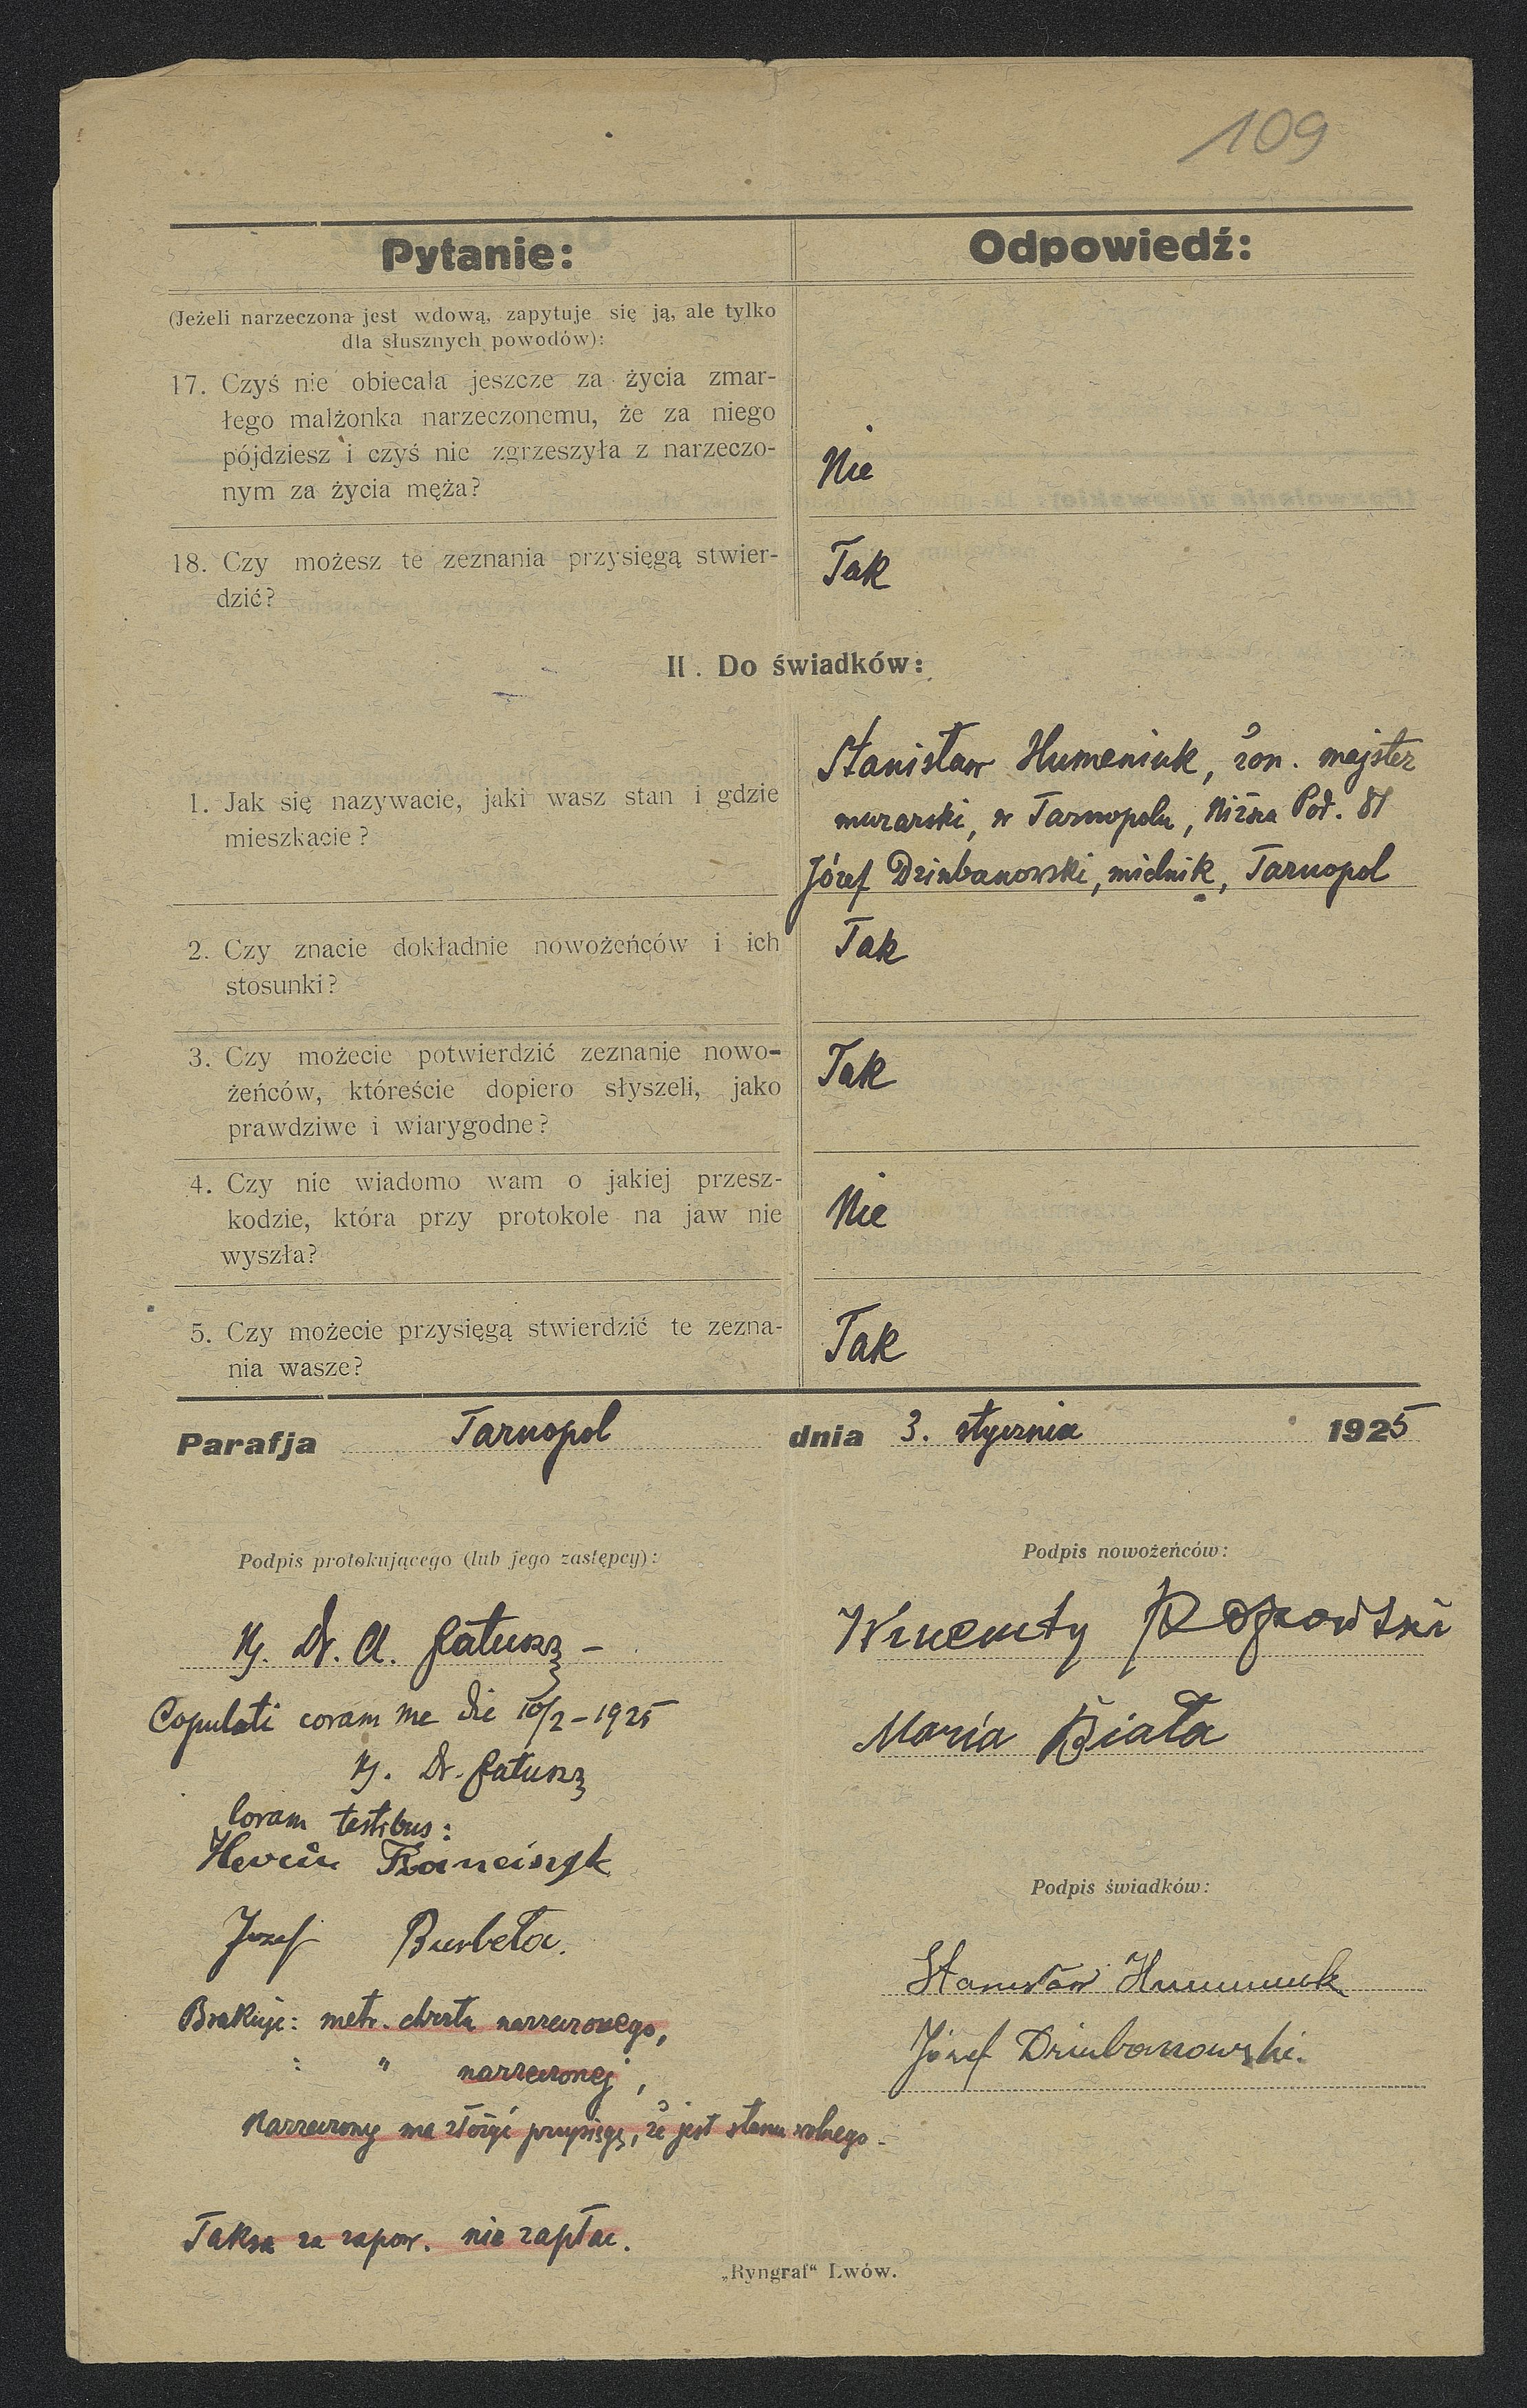 109
Pytanie:
Odpowiedź:
(Jeżeli narzeczona jest wdową, zapytuje się ją, ale tylko
dla słusznych powodów):
17. Czyś nie obiecała jeszcze za życia zmar-
łego małżonka narzeczonemu, że za niego
pójdziesz i czyś nie zgrzeszyła z narzeczo-
nym za życia męża?
Nie
18. Czy możesz te zeznania przysięgą stwier-
dzić?
Tak
II. Do świadków:
1. Jak się nazywacie, jaki wasz stan i gdzie
mieszkacie?
Stanisław Humeniuk, żon. majster
murarski, w Tarnopolu, Niższa Pod. 81
Józef Dziubanowski, mielnik, Tarnopol
2. Czy znacie dokładnie nowożeńców i ich
stosunki?
Tak
3. Czy możecie potwierdzić zeznanie nowo-
żeńców, któreście dopiero słyszeli, jako
prawdziwe i wiarygodne?
Tak
4. Czy nie wiadomo wam o jakiej przesz-
kodzie, która przy protokole na jaw nie
wyszła?
Nie
5. Czy możecie przysięgą stwierdzić te zezna-
nia wasze?
Tak
Parafja Tarnopol dnia 3. stycznia 1925
Podpis protokującego (lub jego zastępcy):
X. Dr. A. Ratusz -
Copulati coram me die 10/2 - 1925
X. Dr. Ratusz
Coram testibus:
Franciszyk
Józef Burbeła.
Brakuje: metr. chrztu narzeczonego,
" " narzeczonej,
Narzeczony ma złożyć przysięgę, że jest stanu wolnego -
Taksa za zapow. nie zapłac.
Podpis nowożeńców:
Wincenty
Maria Biała
Podpis świadków:
Stanisław Humeniuk
Józef Dziubanowski.
„Ryngraf" Lwów.